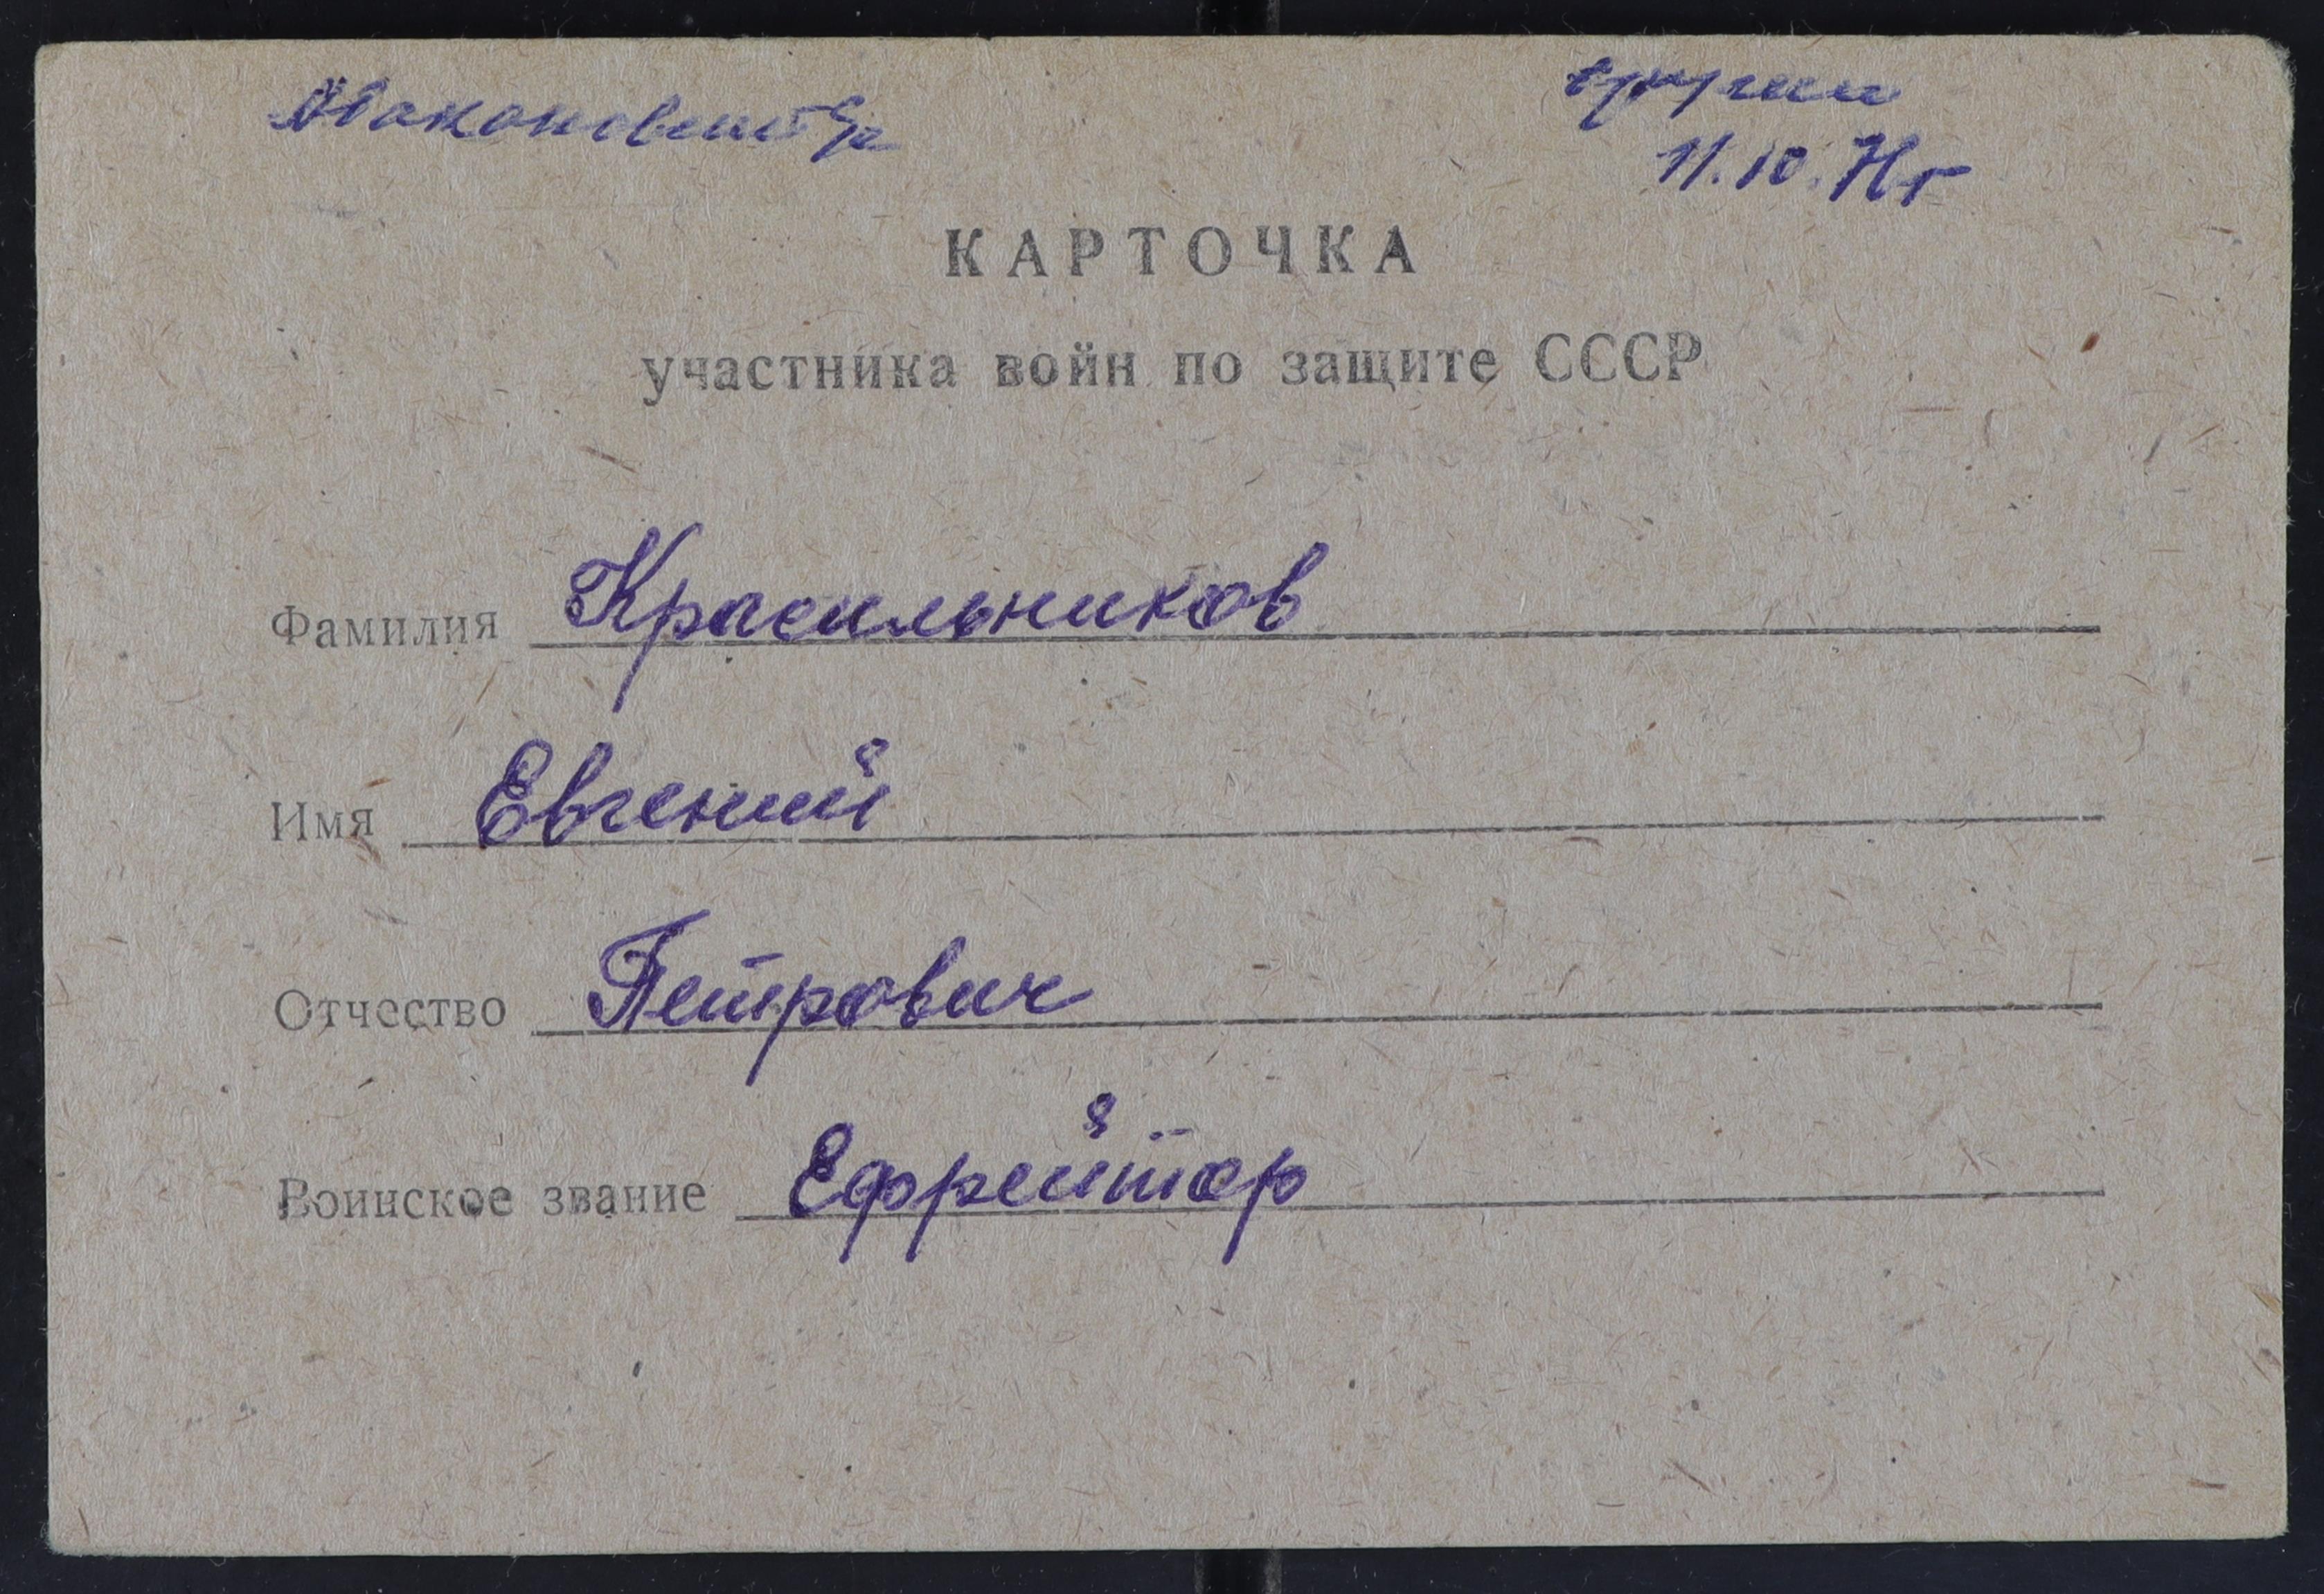 11.10.71г
КАРТОЧКА
участника войн по защите СССР
Фамилия Красильников
Имя Евгений
Отчество Петрович
Воинское звание Ефрейтор